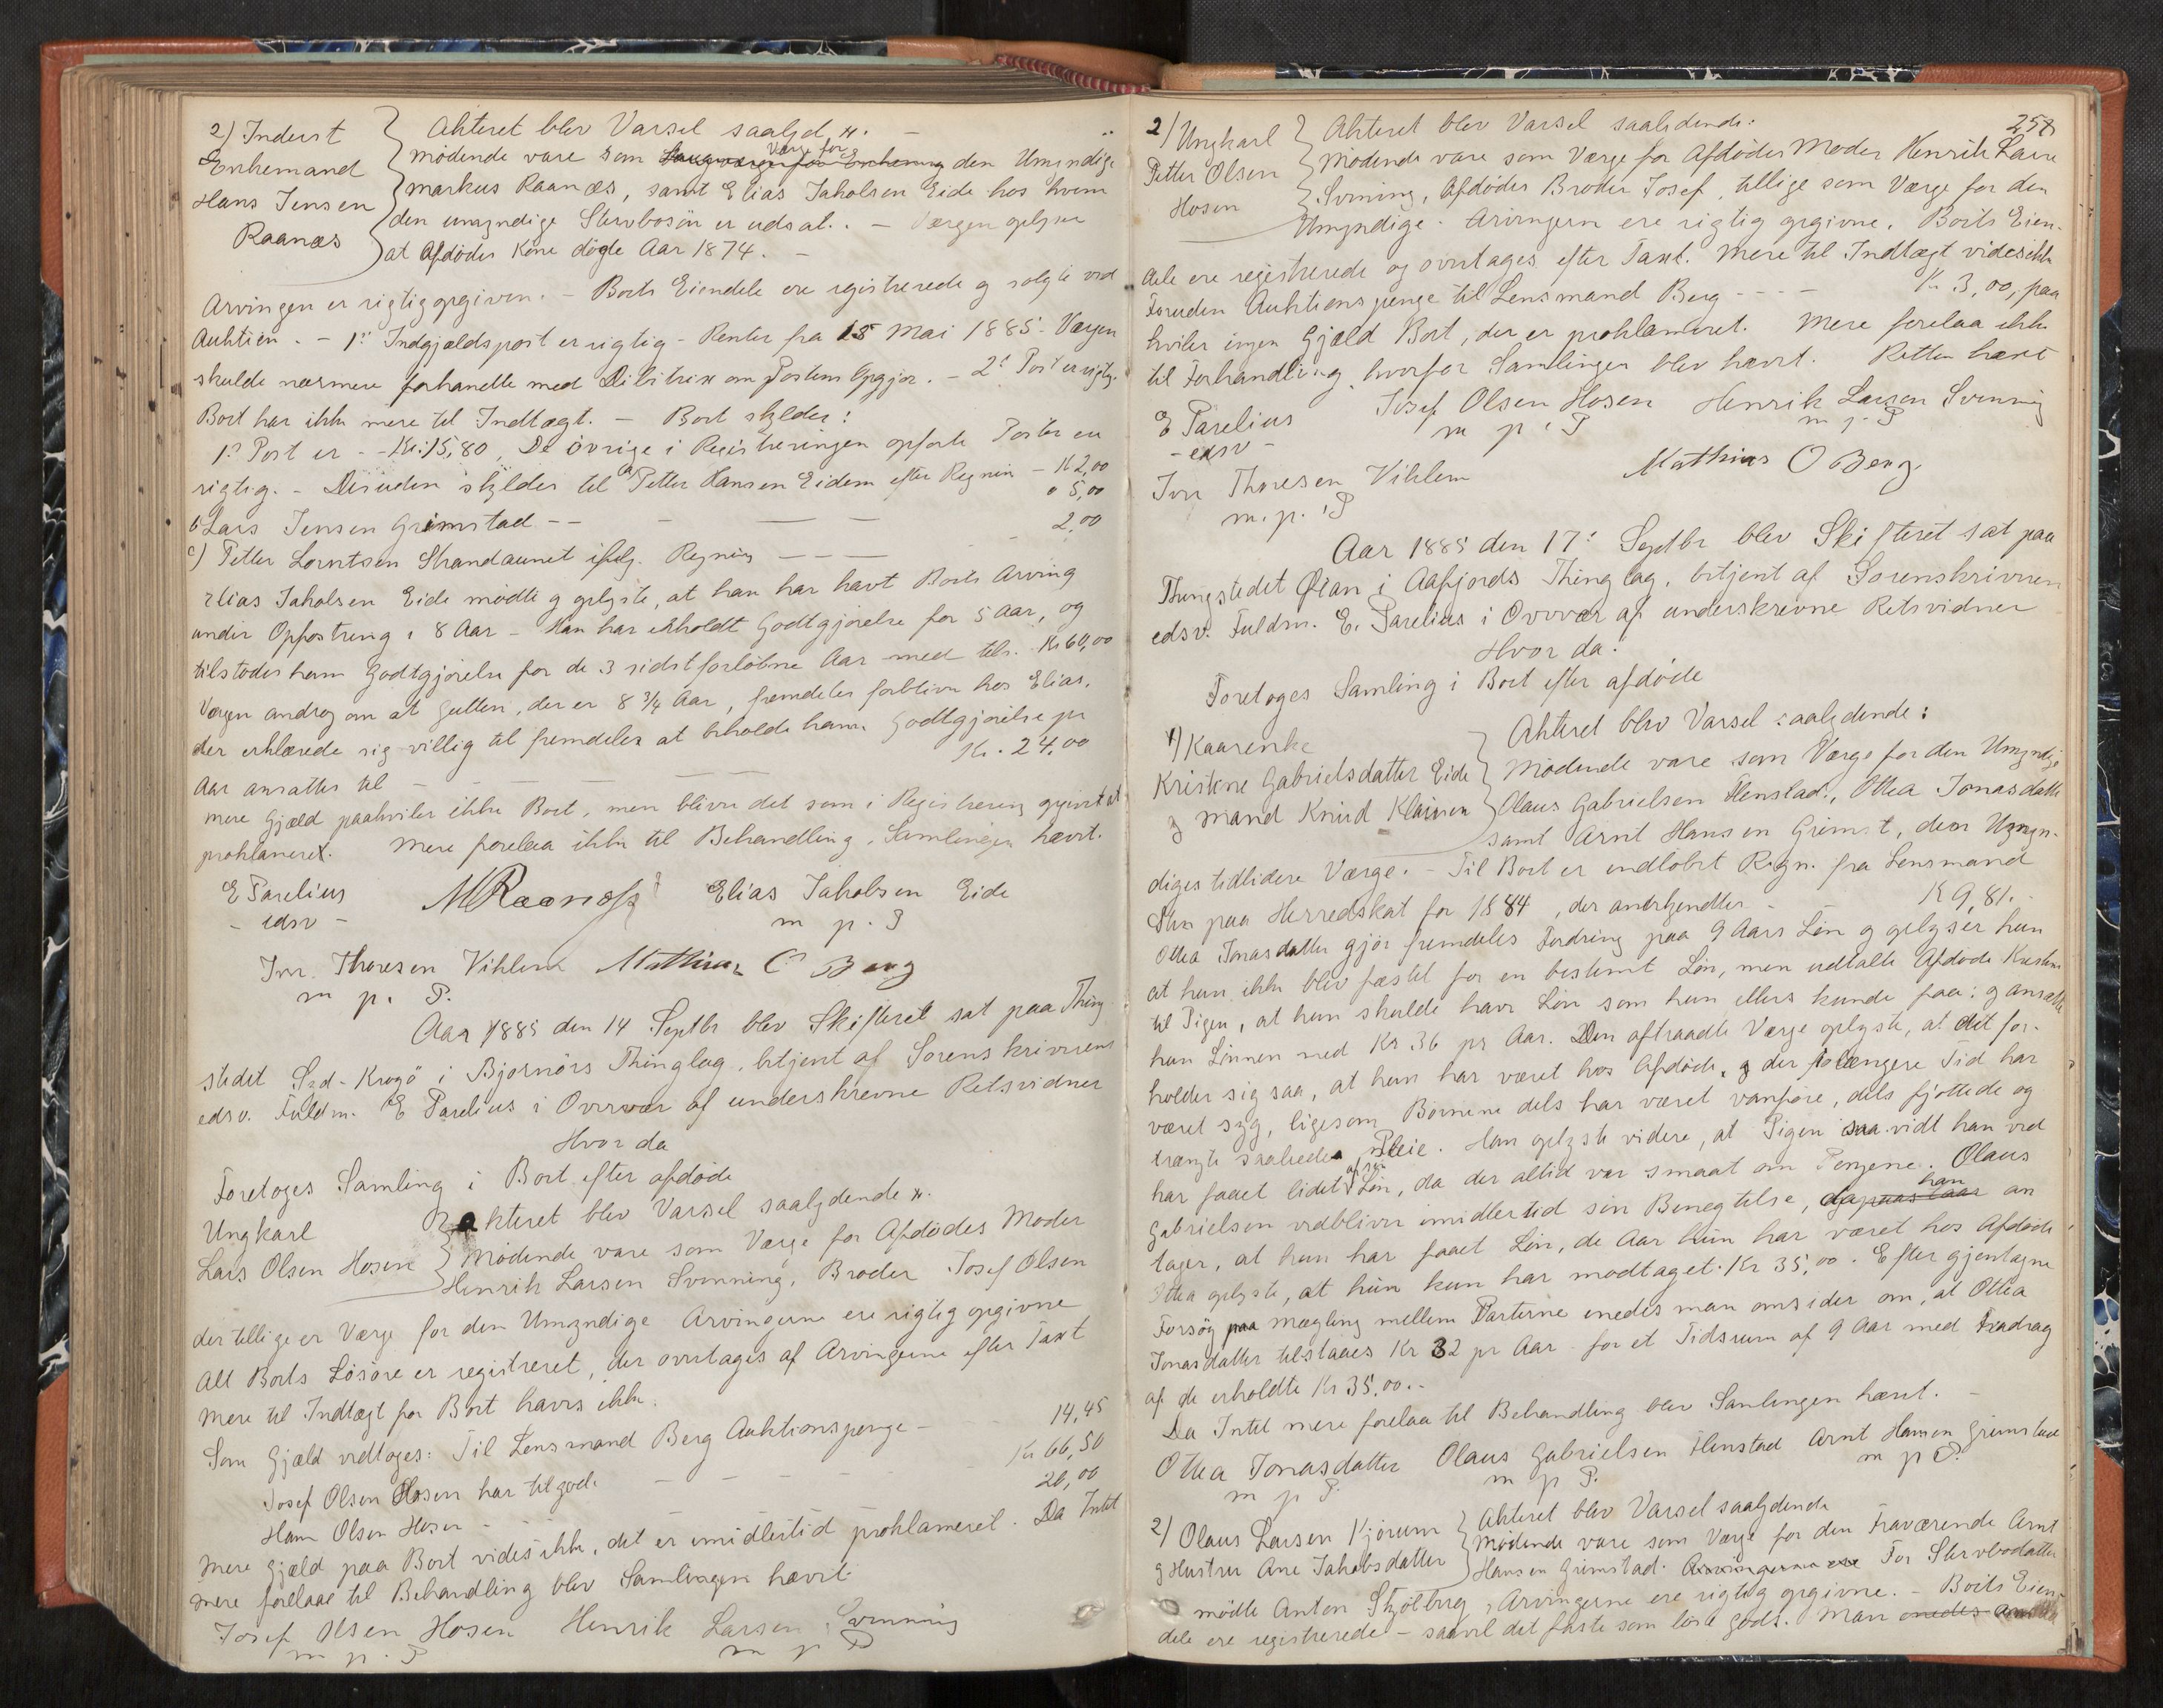 2) Inderst
Enkemand
Hans Jensen
Raanæs
Akteret blev Varsel saalyd. 
Mødende vare som Værge for den Umyndige
Markus Raanæs, samt Elias Jakobsen Eide hos hvem
den umyndige Stervbosøn er udsat. - Værgen oplyser
at Afdødes Kone døde Aar 1874. -
Arvingen er rigtig opgiven. - Boets Eiendele ere registrerede og solgte ved
Auktion. - 1ste Indgjældspost er rigtig - Renter fra 15 Mai 1885. Værgen
skulde nærmere forhandle med Debitrix om Postens Opgjør. - 2den Post er rigtig.
Boet har ikke mere til Indtægt. - Boet skylder:
1ste Post er - - Kr. 15,80, De øvrige i Registreringen opførte Poster ere
rigtig. - Desuden skyldes til a Petter Hansen Eidem efter Regning - Kr 2,00
b Lars Jensen Grimstad - - - - - " 5,00
c) Petter Lorntsen Strandaunet ifølg. Regning - - - 2,00
Elias Jakobsen Eide mødte og oplyste, at han har havt Boets Arving
under Opfostring i 8 Aar - Han har erholdt Godtgjørelse for 5 Aar, og
tilstodes ham Godtgjørelse for de 3 sidst forløbne Aar med tils. Kr 60,00
Værgen androg om at Gutten, der er 8 3/4 Aar, fremdeles forbliver hos Elias,
der erklærede sig villig til fremdeles at beholde ham. Godtgjørelse pr
Aar ansattes til - - - - - Kr. 24.00
Mere Gjæld paahviler ikke Boet, men bliver det som i Registrering opgivet at
proklameret. Mere forelaa ikke til Behandling. Samlingen hævet.
E Parelius
- edsv -
M Raanæs
Elias Jakobsen Eide
m p. P
Iver Thoresen Vihlem Mathias O Berg
m p. P.
Aar 1885 den 14 Septbr blev Skifteret sat paa Thing
stedet Syd-Krogø i Bjørnørs Thinglag, betjent af Sorenskriverens
edsv. Fuldm. E Parelius i Overvær af underskrevne Retsvidner
Hvor da
Foretoges Samling i Boet efter afdøde
Ungkarl
Lars Olsen Hosen
Akteret blev Varsel saalydende 
Mødende vare som Værge for Afdødes Moder
Henrik Larsen Svenning, Broder Josef Olsen
der tillige er Værge for den Umyndige Arvingerne ere rigtig opgivne
Alt Boets Løsøre er registreret, der overtages af Arvingerne efter Taxt
Mere til Indtægt for Boet haves ikke.
Som Gjæld vedtoges: Til Lensmand Berg Auktionspenge - - 14,45
Josef Olsen Hosen har tilgode - - - - Kr 66,50
Hans Olsen Hosen - - - 20,00
Mere Gjæld paa Boet vides ikke, det er imidlertid proklameret. Da Intet
mere forelaae til Behandling blev Samlingen hævet.
Josef Olsen Hosen Henrik Larsen Svenning
m p. P m p P
258
2) Ungkarl
Petter Olsen
Hosen
Akteret blev Varsel saalydende:
Mødende vare som Værge for Afdødes Moder Henrik Larsen
Svenning, Afdødes Broder Josef, tillige som Værge for den
Umyndige. Arvingerne ere rigtig opgivne. Boets Eien-
dele ere registrerede og overtages efter Taxt. Mere til Indtægt vides ikke
Foruden Auktionspenge til Lensmand Berg - - - - Kr 3,00, paa
hviler ingen Gjæld Boet, der er proklameret. Mere forelaa ikke
til Forhandling, hvorfor Samlingen blev hævet. Retten hævet
E Parelius
- edsv -
Josef Olsen Hosen Henrik Larsen Svenning
m p. P m p. P
Iver Thoresen Vihlem Mathias O Berg
m. p. P
Aar 1885 den 17de Septbr blev Skifteret sat paa
Thingstedet Øian i Aafjords Thinglag, betjent af Sorenskriveren
edsv. Fuldm. E. Parelius i Overvær af underskrevne Retsvidner
Hvor da!
Foretoges Samling i Boet efter afdøde
1) Kaarenke
Kristine Gabrielsdatter Eide
og Mand Knud Klausen
Akteret blev Varsel saalydende:
Mødende vare som Værge for den Umyndige
Olaus Gabrielsen Flenstad, Ottea Jonasdatter
samt Arnt Hansen Grimst, den Umyn-
diges tidligere Værge. - Til Boet er indløbet Regn. fra Lensmand
paa Herredskat for 1884, der anerkjendtes - - Kr 9,81.
Ottea Jonasdatter gjør fremdeles Fordring paa 9 Aars Løn og oplyser hun
at hun ikke blev fæstet for en bestemt Løn, men udtalte Afdøde Kristine
til Pigen, at hun skulde have Løn som hun ellers kunde faa; og ansatte
hun Lønnen med Kr 36 pr Aar. Den aftraadte Værge oplyste, at det for-
holder sig saa, at hun har været hos Afdøde, og der i længere Tid har
været syg, ligesom Børnene dels har været vanføre, dels fjottede og
trængte saaledes Pleie. Han oplyste videre, at Pigen saavidt han ved
har faaet lidet af sin Løn, da der altid var smaat om Pengene. Olaus
Gabrielsen vedbliver imidlertid sin Benegtelse, da han an
tager, at hun har faaet Løn, de Aar hun har været hos Afdøde
Ottea oplyste, at hun kun har modtaget Kr 35,00. Efter gjentagne
Forsøg paa Mægling mellem Parterne enedes man omsider om, at Ottea
Jonasdatter tilstaaes Kr 32 pr Aar for et Tidsrum af 9 Aar med Fradrag
af de erholdte Kr 35.00. -
Da Intet mere forelaa til Behandling blev Samlingen hævet. -
Ottea Jonasdatter Olaus Gabrielsen Flenstad Arnt Hansen Grimstad
m p P. m p P. m p P.
2) Olaus Larsen Kjørum
og Hustru Ane Jakobsdatter
Akteret blev Varsel saalydende
Mødende vare som Værge for den Fraværende Arnt
Hansen Grimstad. Arvingerne ere For Stervbodatter
mødte Anton Skjølberg, Arvingerne ere rigtig opgivne. - Boets Eien-
dele ere registrerede - saavel det faste som løse Gods. Man enedes om